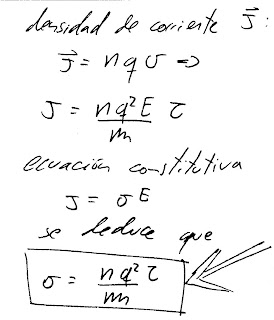 densidad de corriente J⃗:
J⃗ = n q v ⇒
J = nq²E/m τ
ecuación constitutiva
J = σE
se deduce que
σ = nq²τ/m